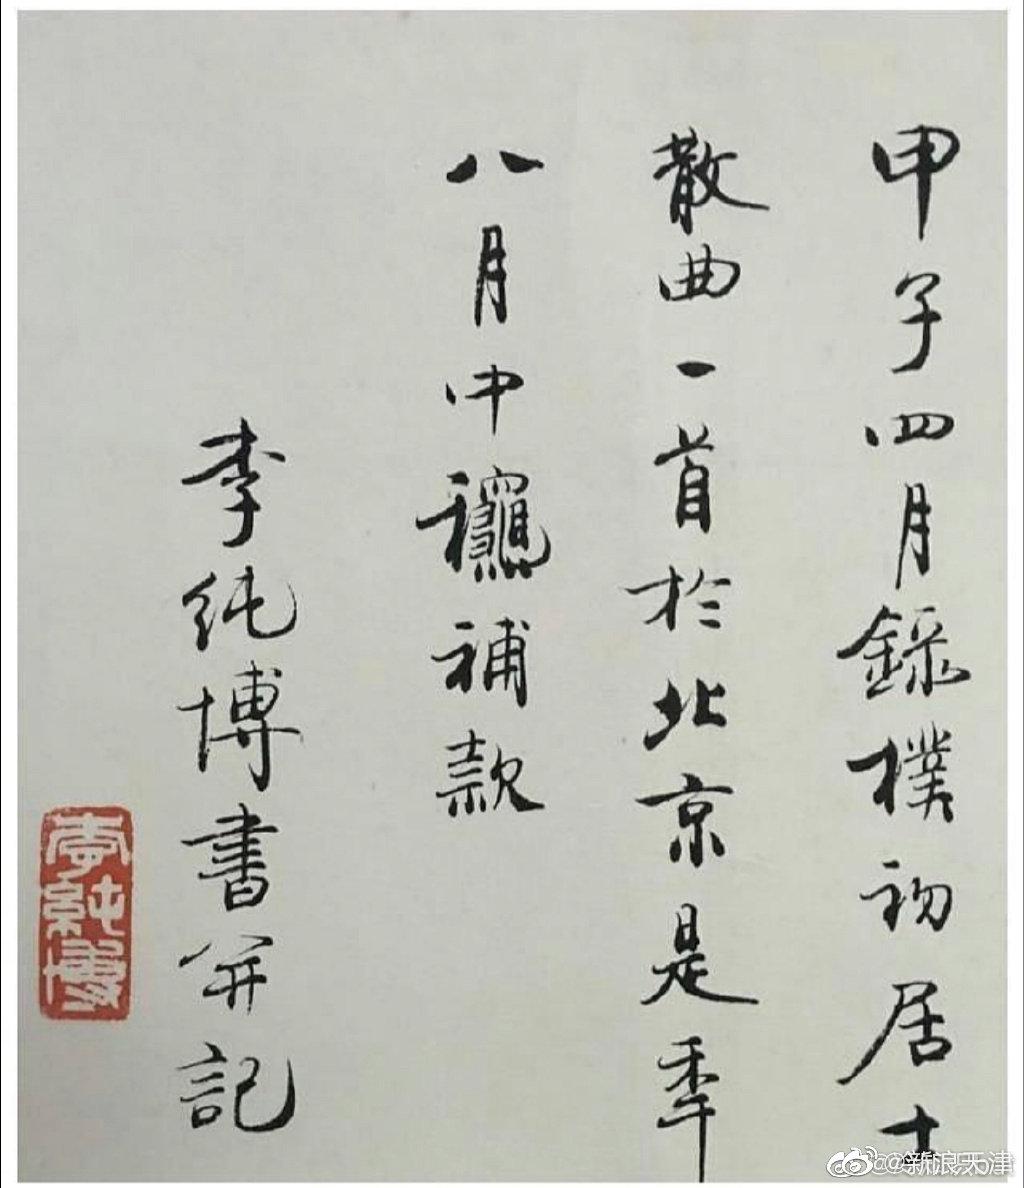 甲子四月錄樸初居士
散曲一首於北京是年
八月中龝補款
李純博書並記
李純博
@新浪天津